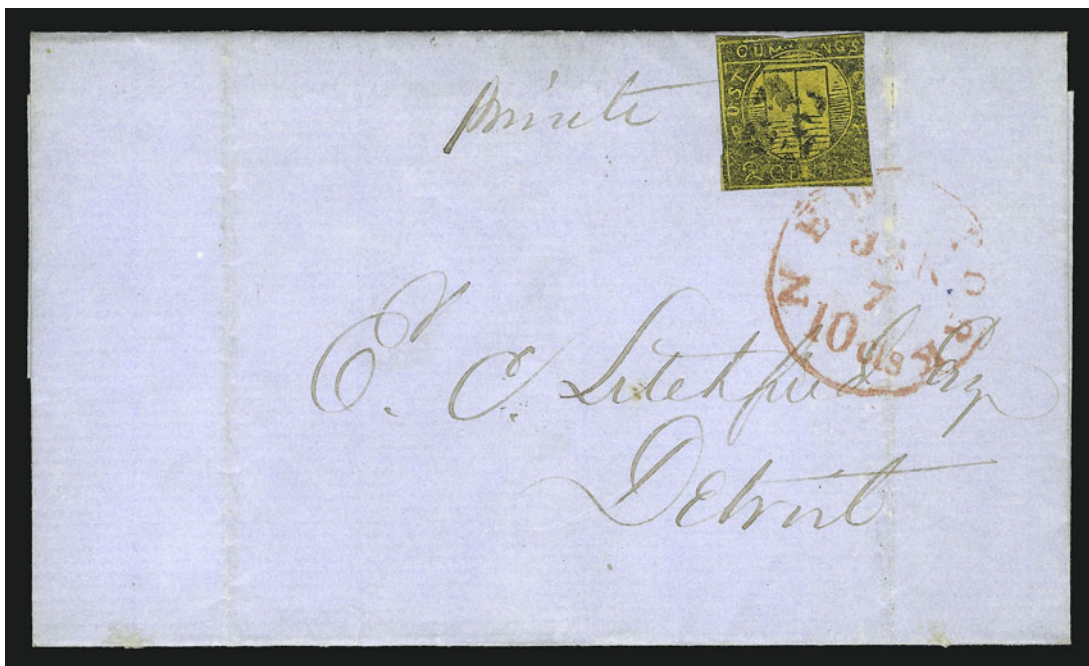 CUMMINGS
POST
2 CENTS
Private
NEW YORK
JAN
7
10 cts
E. C. Litchfield Esq
Detroit